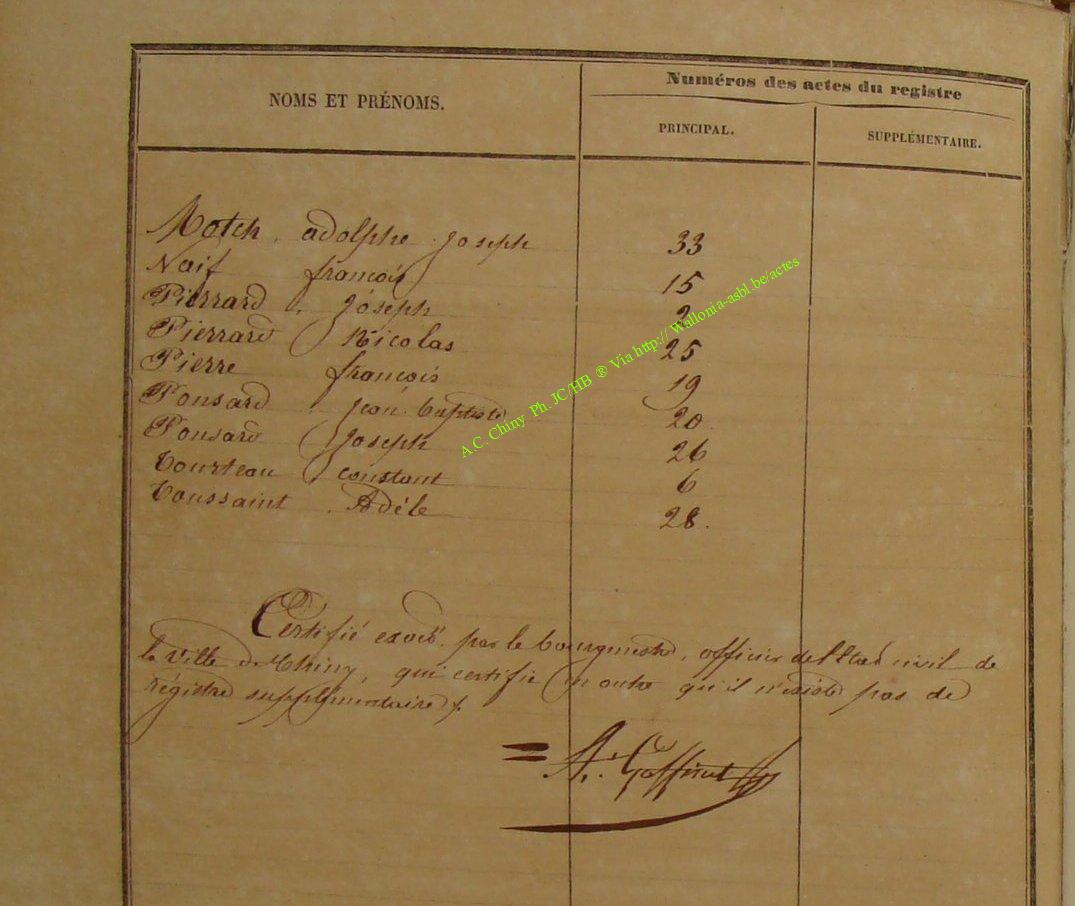 NOMS ET PRÉNOMS.
Numéros des actes du registre
PRINCIPAL.
SUPPLÉMENTAIRE.
Motch adolphe Joseph 33
Naif françois 15
Pierrard Joseph 2
Pierrard Nicolas 25
Pierre françois 19
Ponsard Jean Baptiste 20.
Ponsard Joseph 26
Tourteau constant 6
Toussaint Adèle 28.
A.C. Chiny Ph. JC/HB ® Via http:// Wallonia-asbl.be/actes
Certifié exact par le bourgmestre, officier de l'Etat civil de
la Ville de Chiny, qui certifie en outre qu'il n'existe pas de
régistre supplémentaire